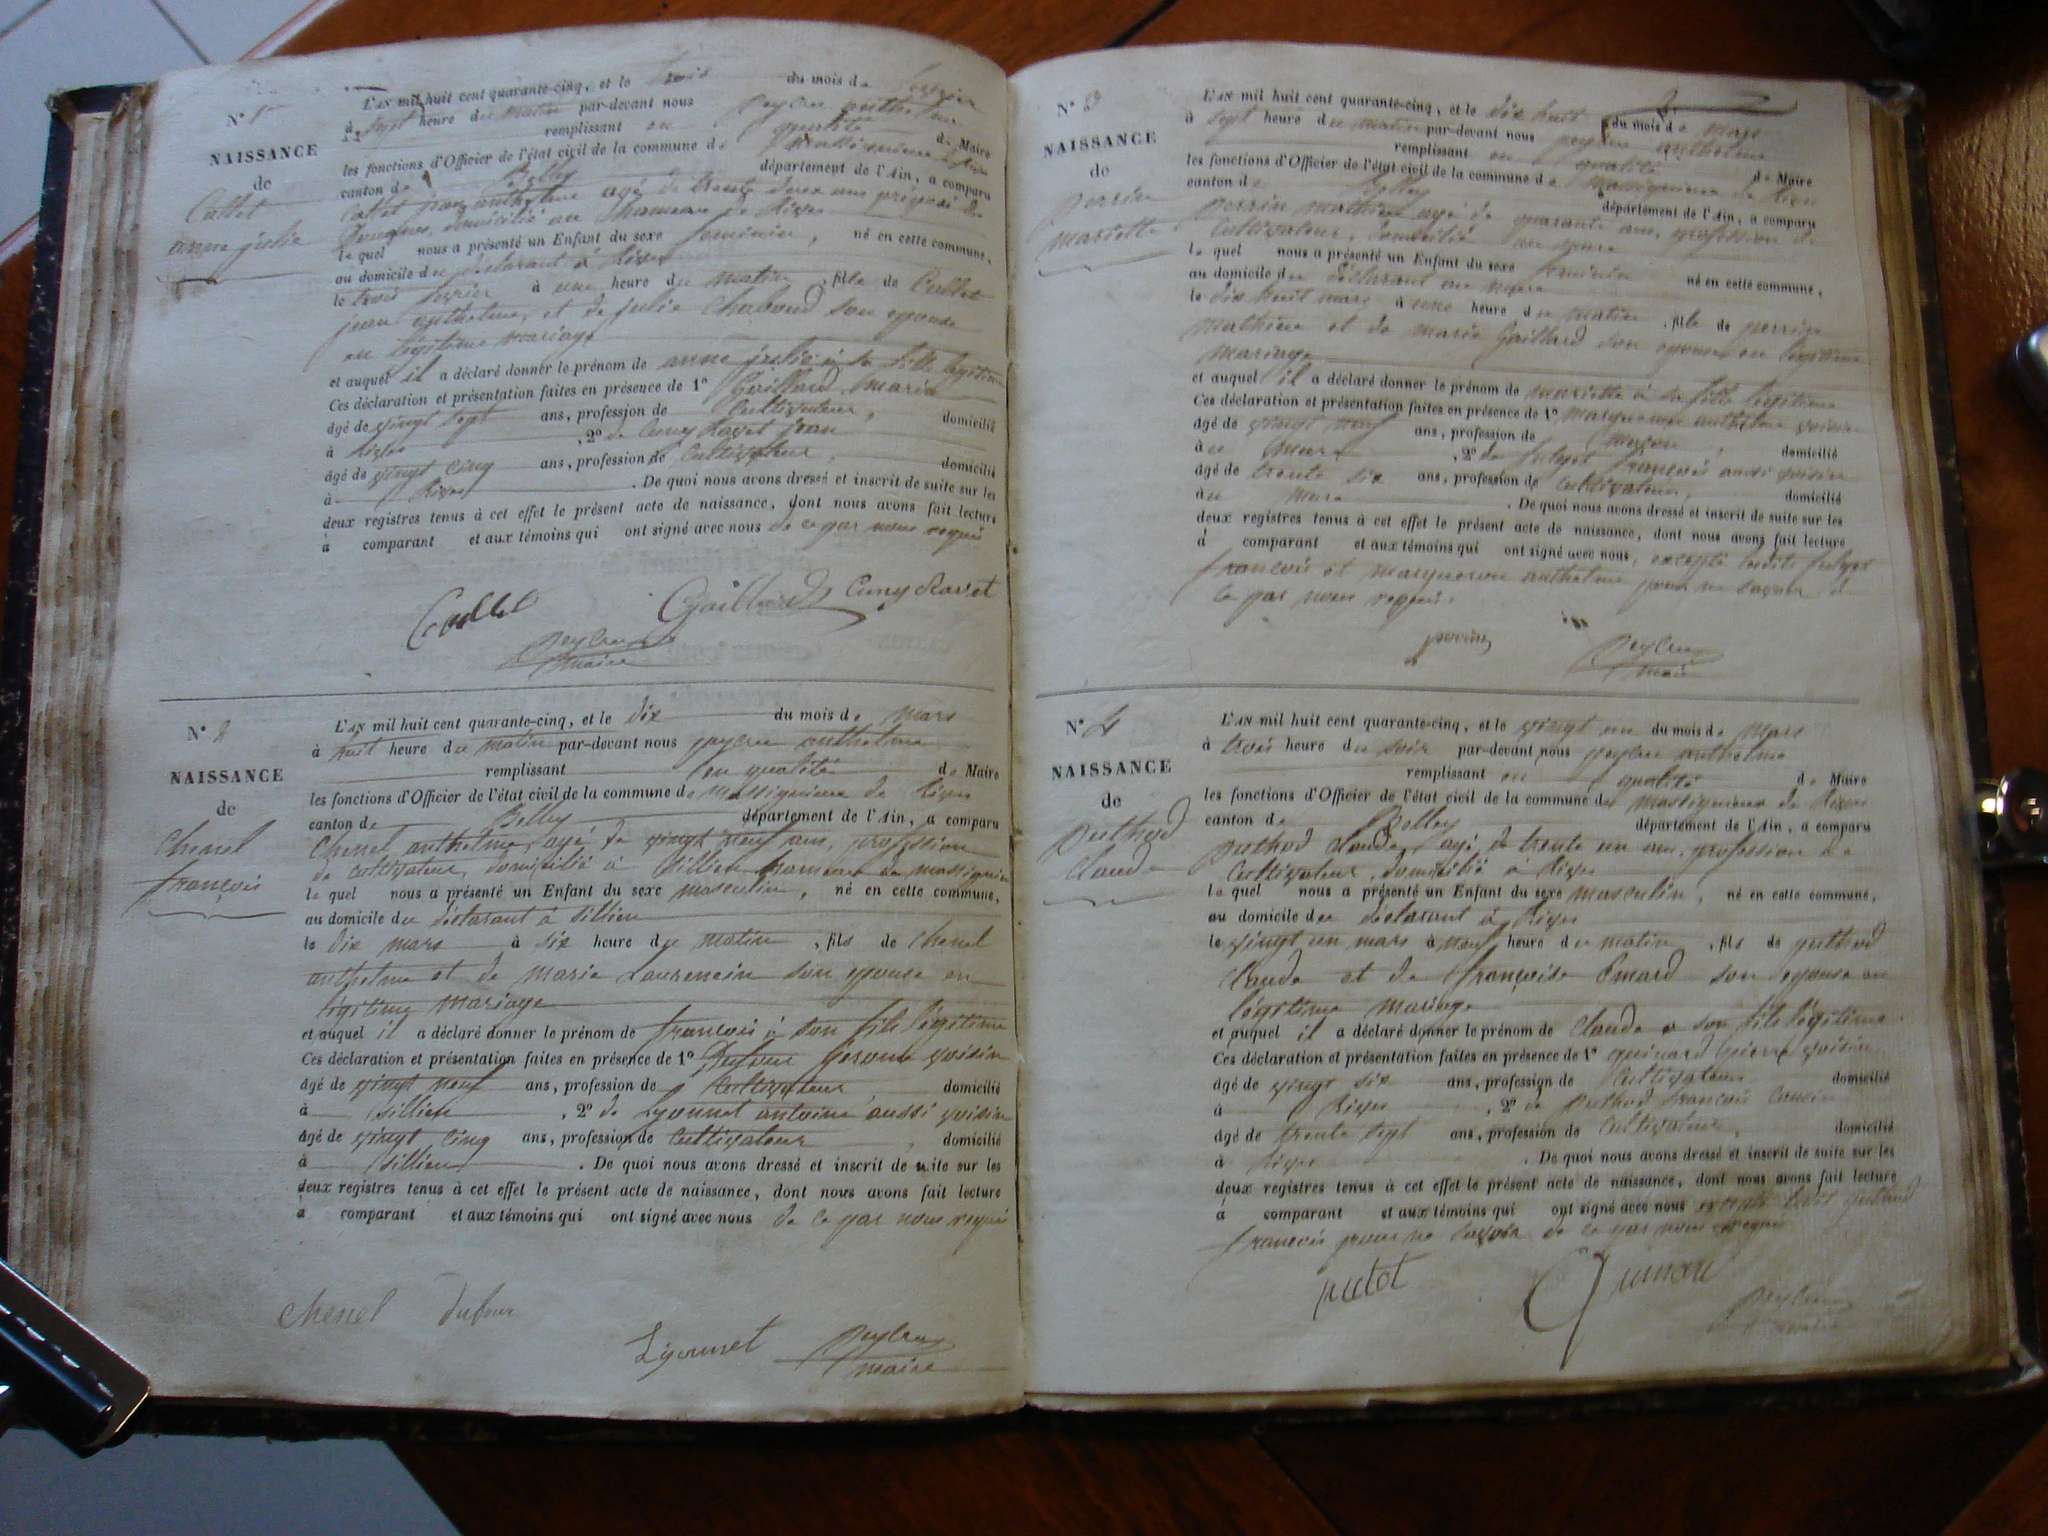 N° 1
NAISSANCE
de
Callet
anne julie
L'AN mil huit cent quarante-cinq, et le trois du mois de fevrier
à sept heure du matin par-devant nous peyleu anthelme
remplissant en qualité de Maire
les fonctions d'Officier de l'état civil de la commune de
canton de Belley département de l'Ain, a comparu
Callet jean anthelme agé de trente deux ans préposé des
Douanes, domicilié au hameau de
le quel nous a présenté un Enfant du sexe feminin, né en cette commune,
au domicile du déclarant à
le trois fevrier à une heure du matin, fille de Callet
jean anthelme, et de julie Chaboud son epouse
en légitime mariage
et auquel il a déclaré donner le prénom de anne julie à sa fille légitime
Ces déclaration et présentation faites en présence de 1° Gaillard
âgé de vingt sept ans, profession de Cultivateur, domicilié
à , 2° de Cuny Ravet jean
âgé de vingt cinq ans, profession de Cultivateur, domicilié
à . De quoi nous avons dressé et inscrit de suite sur les
deux registres tenus à cet effet le présent acte de naissance, dont nous avons fait lecture
à comparant et aux témoins qui ont signé avec nous de ce par nous requis
Callet Gaillard Cuny Ravet
peyleu
maire
N° 2
NAISSANCE
de
Chenel
françois
L'AN mil huit cent quarante-cinq, et le dix du mois de mars
à huit heure du matin par-devant nous peyleu anthelme
remplissant en qualité de Maire
les fonctions d'Officier de l'état civil de la commune de massignieu de
canton de Belley département de l'Ain, a comparu
Chenel anthelme, agé de vingt neuf ans, profession
de cultivateur, domicilié à sillien hameau de massignieu
le quel nous a présenté un Enfant du sexe masculin, né en cette commune,
au domicile du déclarant à sillien
le dix mars à six heure du matin, fils de Chenel
anthelme et de marie Laurencin son epouse en
légitime mariage
et auquel il a déclaré donner le prénom de françois à son fils légitime
Ces déclaration et présentation faites en présence de 1° Dufour voisin
âgé de vingt neuf ans, profession de Cultivateur, domicilié
à sillien, 2° de Lyonnet antoine aussi voisin
âgé de vingt cinq ans, profession de Cultivateur, domicilié
à sillien. De quoi nous avons dressé et inscrit de suite sur les
deux registres tenus à cet effet le présent acte de naissance, dont nous avons fait lecture
à comparant et aux témoins qui ont signé avec nous de ce par nous requis
Chenel Dufour
Lyonnet peyleu
maire
N° 3
NAISSANCE
de
perrin
mariette
L'AN mil huit cent quarante-cinq, et le dix huit du mois de mars
à sept heure du matin par-devant nous peyleu anthelme
remplissant en qualité de Maire
les fonctions d'Officier de l'état civil de la commune de massignieu de
canton de Belley département de l'Ain, a comparu
perrin mathieu agé de quarante ans, profession de
Cultivateur, domicilié au mure
le quel nous a présenté un Enfant du sexe feminin né en cette commune,
au domicile du déclarant au mure
le dix huit mars à une heure du matin, fille de perrin
mathieu et de marie Gaillard son epouse en légitime
mariage
et auquel il a déclaré donner le prénom de mariette à sa fille légitime
Ces déclaration et présentation faites en présence de 1° anthelme voisin
âgé de vingt neuf ans, profession de maçon, domicilié
à u mure, 2° de françois aussi voisin
âgé de trente six ans, profession de Cultivateur, domicilié
à u mure. De quoi nous avons dressé et inscrit de suite sur les
deux registres tenus à cet effet le présent acte de naissance, dont nous avons fait lecture
à comparant et aux témoins qui ont signé avec nous, excepté
françois et anthelme pour ne savoir de
ce par nous requis.
perrin peyleu
maire
N° 4
NAISSANCE
de
puthod
Claude
L'AN mil huit cent quarante-cinq, et le vingt un du mois de mars
à trois heure du soir par-devant nous peyleu anthelme
remplissant en qualité de Maire
les fonctions d'Officier de l'état civil de la commune de massignieu de
canton de Belley département de l'Ain, a comparu
puthod Claude, agé de trente un ans, profession de
Cultivateur, domicilié à
le quel nous a présenté un Enfant du sexe masculin, né en cette commune,
au domicile du déclarant à
le vingt un mars à neuf heure du matin, fils de puthod
Claude et de françoise Emard son epouse en
légitime mariage
et auquel il a déclaré donner le prénom de Claude à son fils légitime.
Ces déclaration et présentation faites en présence de 1° pierre voisin
âgé de vingt six ans, profession de Cultivateur domicilié
à , 2° de puthod françois Cousin
âgé de trente sept ans, profession de Cultivateur, domicilié
à . De quoi nous avons dressé et inscrit de suite sur les
deux registres tenus à cet effet le présent acte de naissance, dont nous avons fait lecture
à comparant et aux témoins qui ont signé avec nous excepté
françois pour ne savoir de ce par nous requis
peyleu